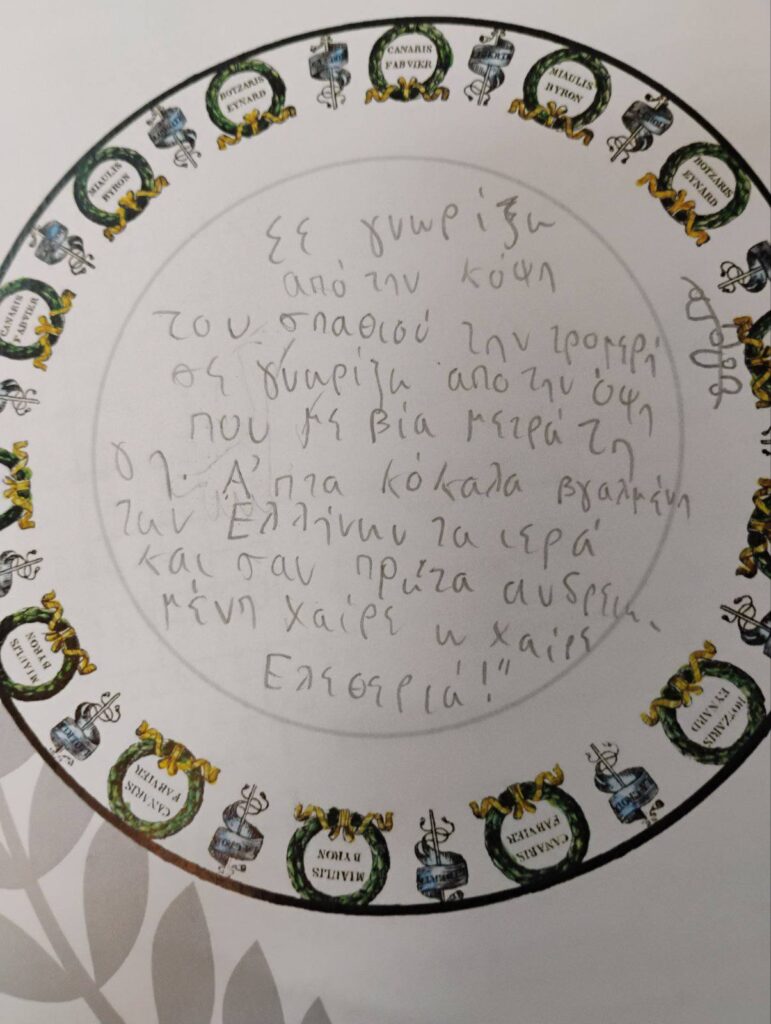 CANARIS
FABVIER
MIAULIS
BYRON
BOTZARIS
EYNARD
CANARIS
FABVIER
MIAULIS
BYRON
BOTZARIS
EYNARD
CANARIS
FABVIER
MIAULIS
BYRON
BOTZARIS
EYNARD
MIAULIS
BYRON
CANARIS
FABVIER
Σε γνωρίζω
από την κόψη
του σπαθιού την τρομερή
σε γνωρίζω από την όψη
που με βία μετρά τη
γη. Α'πτα κόκαλα βγαλμένη
των Ελλήνων τα ιερά
και σαν πρώτα ανδρειω-
μένη χαίρε ω χαίρε
Ελεσεριά!"